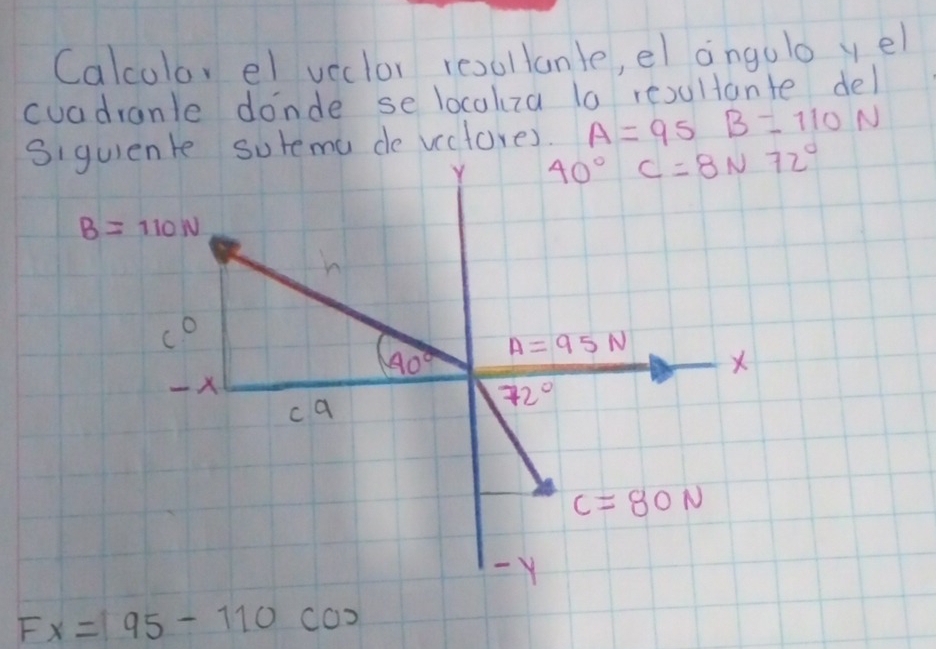 Calcular el vector resultante, el ángulo y el
cuadrante dónde se localiza la resultante del
Siguiente sistema de vectores. A = 95 B = 110 N
40° C = 8N 72°
Y
B = 110N
h
c o
40°
A = 95 N
X
- X
72°
c a
C = 80 N
- Y
Fx = 95 - 110 cos